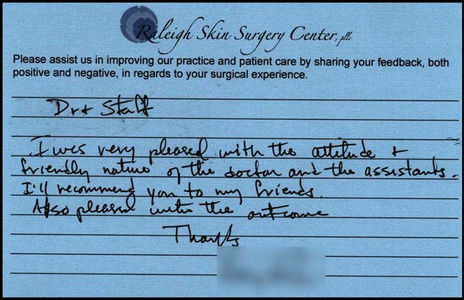 Raleigh Skin Surgery Center, pllc
Please assist us in improving our practice and patient care by sharing your feedback, both
positive and negative, in regards to your surgical experience.
Dr & Staff
I was very pleased with the attitude &
friendly nature of the doctor and the assistants.
I'll recommend you to my friends.
Also pleased with the outcome
Thanks